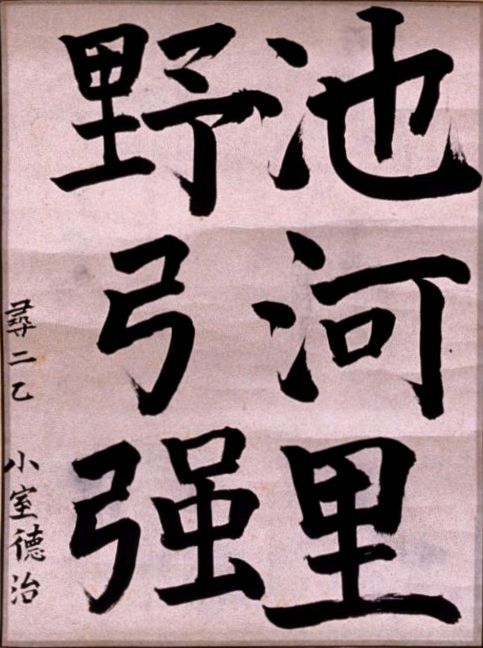 池河里
野弓强
尋二乙 小室德治